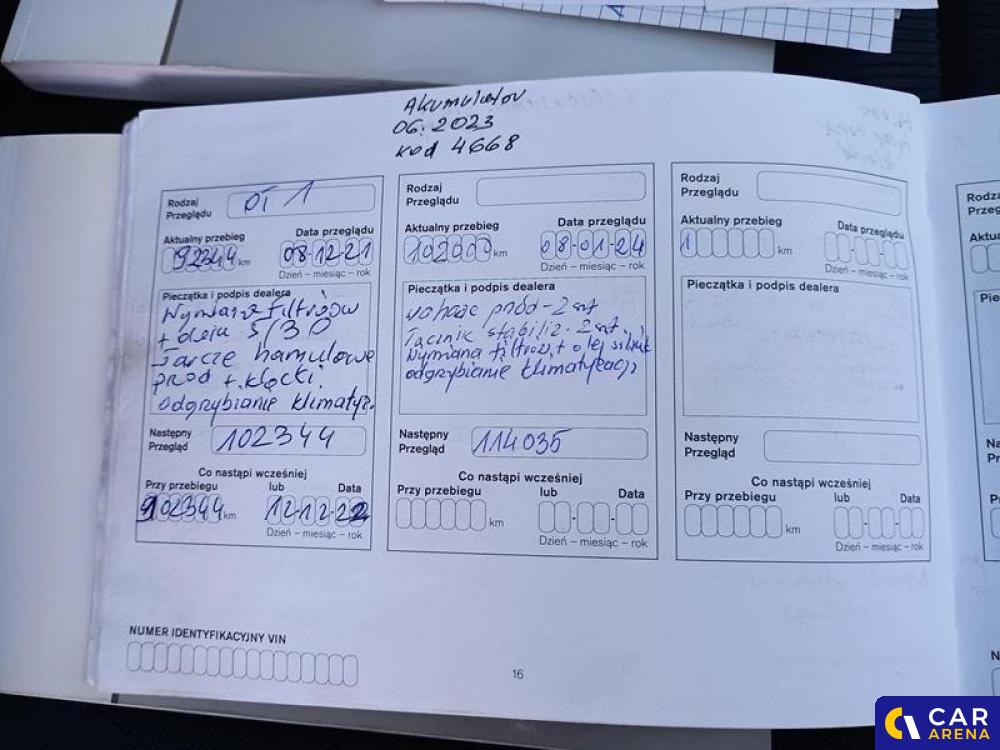 Akumulator
06.2023
kod 4668
Rodzaj
Przeglądu
OT 1
Aktualny przebieg
Data przeglądu
92344 km
08-12-21
Dzień – miesiąc – rok
Pieczątka i podpis dealera
Wymiana filtrów
+ oleju 5/30
tarcze hamulcowe
przód + klocki
odgrzybianie klimatyz.
Następny
Przegląd
102344
Co nastąpi wcześniej
Przy przebiegu
lub
Data
102344 km
12-12-22
Dzień – miesiąc – rok
Rodzaj
Przeglądu
Aktualny przebieg
Data przeglądu
102000 km
08-01-24
Dzień – miesiąc – rok
Pieczątka i podpis dealera
wahacz przód - 2 szt
Łącznik stabiliz. 2 szt
Wymiana filtrów + olej silnik
odgrzybianie klimatyzacji
Następny
Przegląd
114035
Co nastąpi wcześniej
Przy przebiegu
lub
Data
km
Dzień – miesiąc – rok
Rodzaj
Przeglądu
Aktualny przebieg
Data przeglądu
1 km
Dzień – miesiąc – rok
Pieczątka i podpis dealera
Następny
Przegląd
Co nastąpi wcześniej
Przy przebiegu
lub
Data
km
Dzień – miesiąc – rok
NUMER IDENTYFIKACYJNY VIN
16
CAR
ARENA